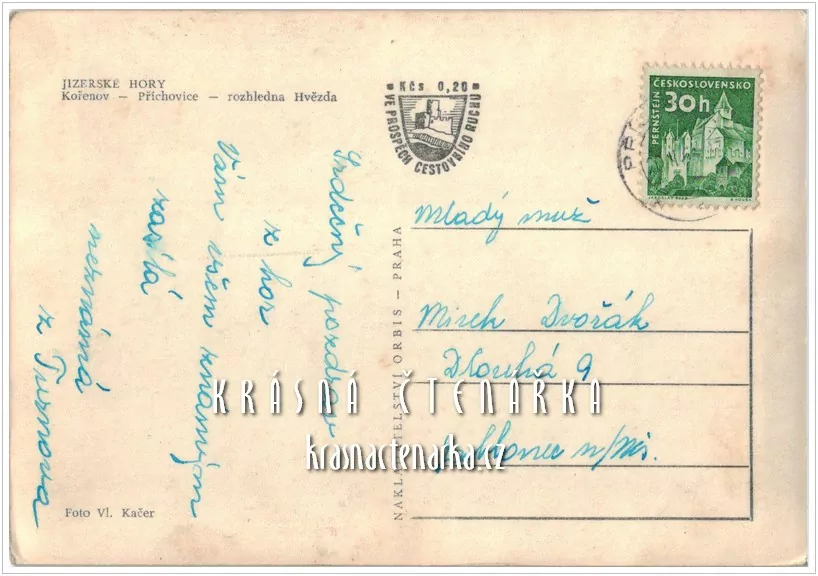 JIZERSKÉ HORY
Kořenov — Příchovice — rozhledna Hvězda
Kčs 0,20
VE PROSPĚCH CESTOVNÍHO RUCHU
ČESKOSLOVENSKO
30h
PERNŠTEJN
Srdečný pozdrav
z hor
Vám všem známým
zasílá
neznámá
z Turnova
NAKLADATELSTVÍ ORBIS — PRAHA
Mladý muž
Mirek Dvořák
Dlouhá 9
Jablonec n/Nis.
KRÁSNÁ ČTENÁŘKA
krasnactenarka.cz
Foto Vl. Kačer